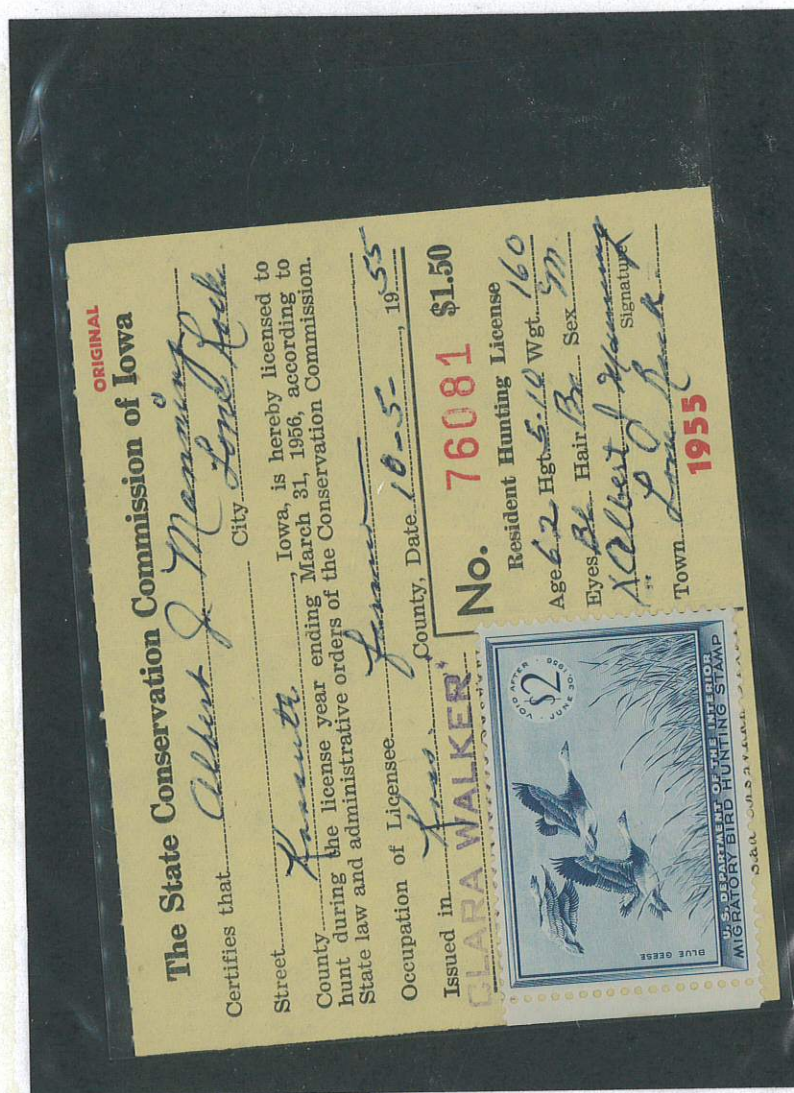 ORIGINAL
The State Conservation Commission of Iowa
Certifies that Albert J Manning
Street City Lone Rock
County Kossuth, Iowa, is hereby licensed to
hunt during the license year ending March 31, 1956, according to
State law and administrative orders of the Conservation Commission.
Occupation of Licensee Farmer
Issued in Koss. County, Date 10-5-, 1955
CLARA WALKER
No. 76081 $1.50
Resident Hunting License
Age 62 Hgt. 5-10 Wgt. 160
Eyes Bl Hair Br Sex M
X Albert J Manning
Signature
Town Lone Rock
1955
VOID AFTER JUNE 30 1956
$2
BLUE GEESE
U.S. DEPARTMENT OF THE INTERIOR
MIGRATORY BIRD HUNTING STAMP